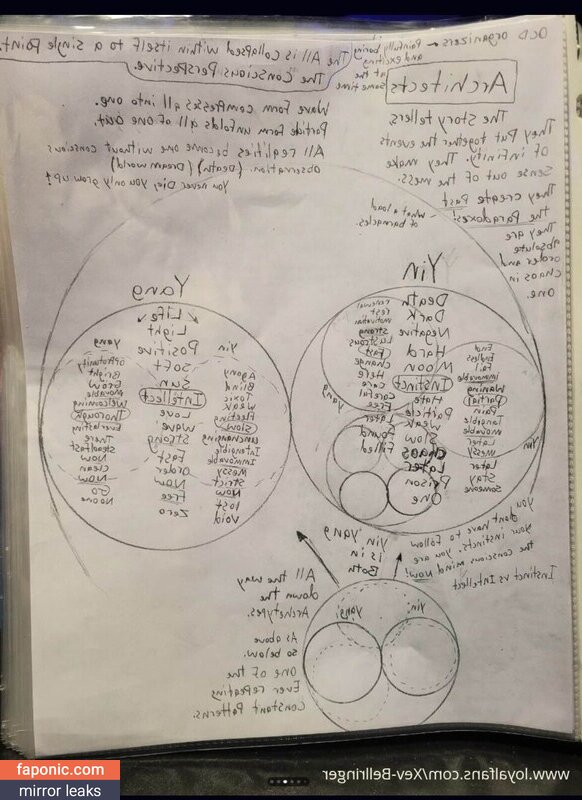 OCD organizers → Painfully boring
and exciting
at the
same time
The All is collapsed within itself to a single Point.
The Conscious Perspective.
Architects
The Story tellers,
They Put together the events
of infinity. They make
sense out of the mess.
They create Past
the Paradoxes!
They are
absolute
order and
chaos in
one.
Wave Form compresses all into one.
Particle Form unfolds all of one out.
All realities become one without conscious
observation. (Death) (Dream world)
You never Die, you only grow up!
what a load
of barnacles
Yin
Death
Dark
Negative
Hard
Moon
Instinct
Hate
Particle
Weak
Slow
chaos
Later
Prison
One
renewal
rest
motivation
Strong
Fast
Change
Here
care
careful
Free
Later
Found
Filled
yang
End
Endless
Fail
Immovable
Waning
Partial
Pain
Tangible
Movable
Later
messy
Later
Stay
Someone
Yin
Yang
Life
Light
Positive
Soft
Sun
Intellect
Love
Wave
Strong
Fast
Order
Now
Free
Zero
Yin
Agony
Blind
Toxic
Weak
Fleeting
Slow
Unchanging
Intangible
Immovable
Messy
Strict
Now
Lost
Void
yang
opportunity
Bright
Grow
Movable
Welcoming
Thorough
Everlasting
There
Steadfast
Now
clean
Now
Go
No one
you don't have to follow
your instincts, you are
the conscious mind Now!
Instinct vs Intellect
Yin Yang
is in
Both
Yin
yang
All the way
down the
Archetypes.
As above
so below.
One of the
Ever repeating
Constant Patterns.
www.loyalfans.com/Xev-Bellringer
faponic.com
mirror leaks